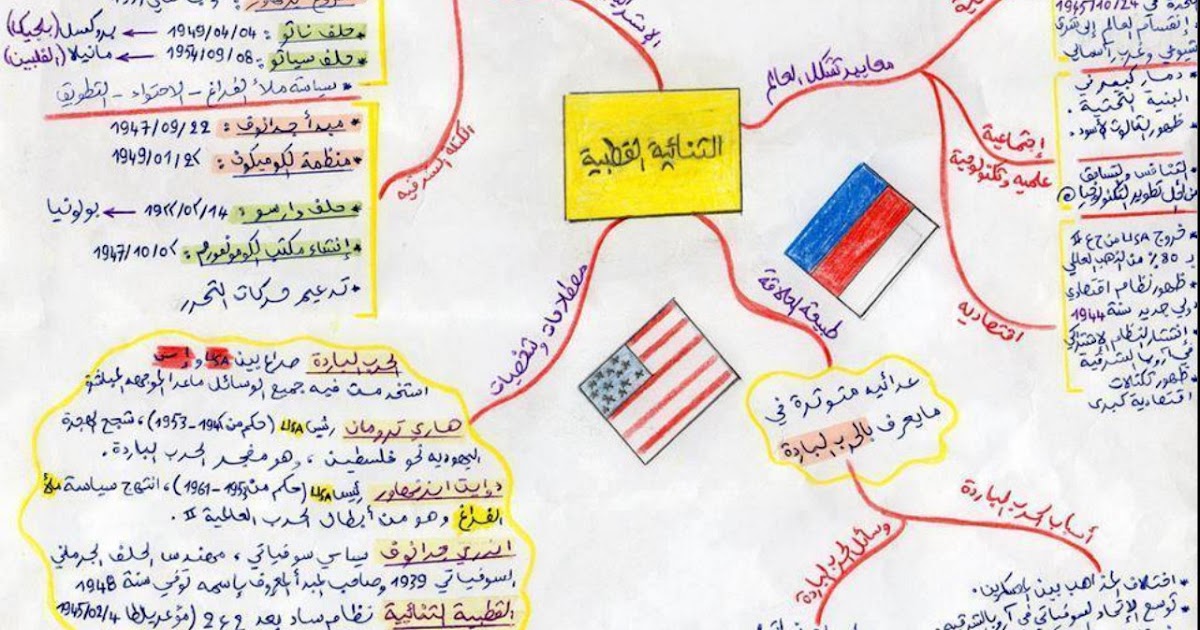 الثنائية القطبية
معايير تشكل العالم
1945/10/24
إنقسام العالم إلى شرق
شيوعي وغرب رأسمالي
دمار كبير في
البنية التحتية.
ظهور الثالوث الأسود.
إجتماعية
علمية وتكنولوجية
التنافس والتسابق
من أجل تطوير التكنولوجيا
اقتصادية
* خروج USA من ح ع II
بـ 80% من الذهب العالمي
* ظهور نظام اقتصادي
دولي جديد سنة 1944
* إنتشار النظام الاشتراكي
في أوروبا الشرقية
* ظهور تكتلات
اقتصادية كبرى
* حلف ناتو: 1949/04/04 ← بروكسل (بلجيكا)
* حلف سياتو: 1954/09/08 ← مانيلا (الفلبين)
* سياسة ملأ الفراغ - الاحتواء - التطويق
الكتلة الشرقية
* مبدأ جدانوف: 1947/09/22
* منظمة الكوميكون: 1949/01/25
* حلف وارسو: 1955/05/14 ← بولونيا
* إنشاء مكتب الكومنفورم: 1947/10/05
* تدعيم حركات التحرر
مصطلحات وشخصيات
الحرب الباردة صراع بين USA و إ س
استخدمت فيه جميع الوسائل ماعدا المواجهة المباشرة
هاري ترومان رئيس USA (حكم من 1945-1953)، شجع الهجرة
اليهودية نحو فلسطين، وهو مفجر الحرب الباردة.
دوايت ايزنهاور رئيس USA (حكم من 1953-1961)، انتهج سياسة ملأ
الفراغ وهو من أبطال الحرب العالمية II.
اندري جدانوف سياسي سوفياتي، مهندس الحلف الجرماني
السوفياتي 1939 وصاحب المبدأ المعروف باسمه توفي سنة 1948
القطبية الثنائية نظام ساد بعد ح ع 2 (مؤتمر يالطا 1945/02/4
طبيعة العلاقة
عدائية متوترة في
مايعرف بالحرب الباردة
أسباب الحرب الباردة
وسائل الحرب الباردة
* اختلاف المذاهب بين المعسكرين.
* توسع الإتحاد السوفياتي في أروبا الشرقية